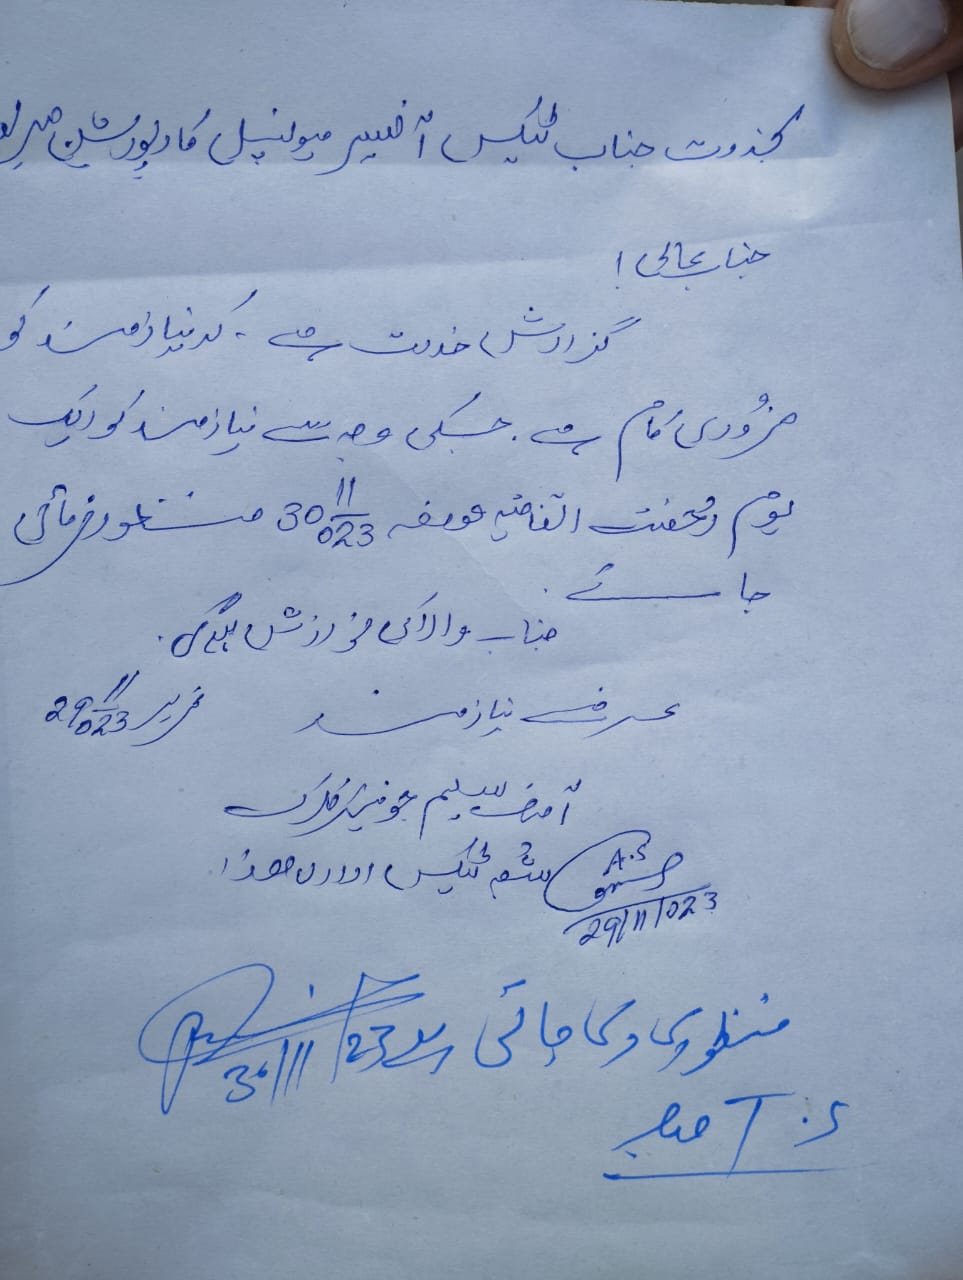 بخدمت جناب ٹیکس آفیسر میونسپل کارپوریشن میرپو
جناب عالی!
گزارش خدمت ہے ۔ کہ نیازمند کو
ضروری کام ہے ۔ جسکی وجہ سے نیازمند کو ایک
یوم رخصت اتفاقیہ مورخہ 30/11/023 منظور فرمائی
جائے ۔
جناب والا کی نوازش ہوگی ۔
عرضے نیازمند تحریر 29/11/023
آصف سلیم جونیئر کلرک
شعبہ ٹیکس ادارہ ھذا
A.S
29/11/023
منظوری دی جاتی ہے 30/11/23
T.S صاحب